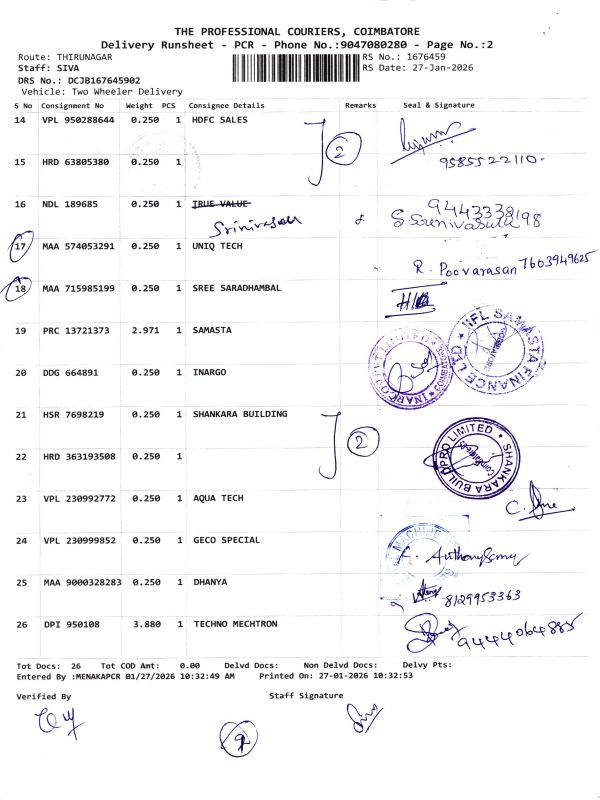 THE PROFESSIONAL COURIERS, COIMBATORE
Delivery Runsheet - PCR - Phone No.:9047080280 - Page No.:2
Route: THIRUNAGAR
RS No.: 1676459
Staff: SIVA
RS Date: 27-Jan-2026
DRS No.: DCJB167645902
Vehicle: Two Wheeler Delivery
S No Consignment No Weight PCS Consignee Details Remarks Seal & Signature
14 VPL 950288644 0.250 1 HDFC SALES
2
9585522110.
15 HRD 63805380 0.250 1
16 NDL 189685 0.250 1 TRUE VALUE
Srinivasan
17 MAA 574053291 0.250 1 UNIQ TECH
R. Poovarasan 7603949625
18 MAA 715985199 0.250 1 SREE SARADHAMBAL
19 PRC 13721373 2.971 1 SAMASTA
IIFL SAMASTA FINANCE LTD
20 DDG 664891 0.250 1 INARGO
21 HSR 7698219 0.250 1 SHANKARA BUILDING
2
SHANKARA BUILDPRO LIMITED
22 HRD 363193508 0.250 1
23 VPL 230992772 0.250 1 AQUA TECH
24 VPL 230999852 0.250 1 GECO SPECIAL
25 MAA 9000328283 0.250 1 DHANYA
8129953363
26 DPI 950108 3.880 1 TECHNO MECHTRON
9444064885
Tot Docs: 26 Tot COD Amt: 0.00 Delvd Docs: Non Delvd Docs: Delvy Pts:
Entered By :MENAKAPCR 01/27/2026 10:32:49 AM Printed On: 27-01-2026 10:32:53
Verified By Staff Signature